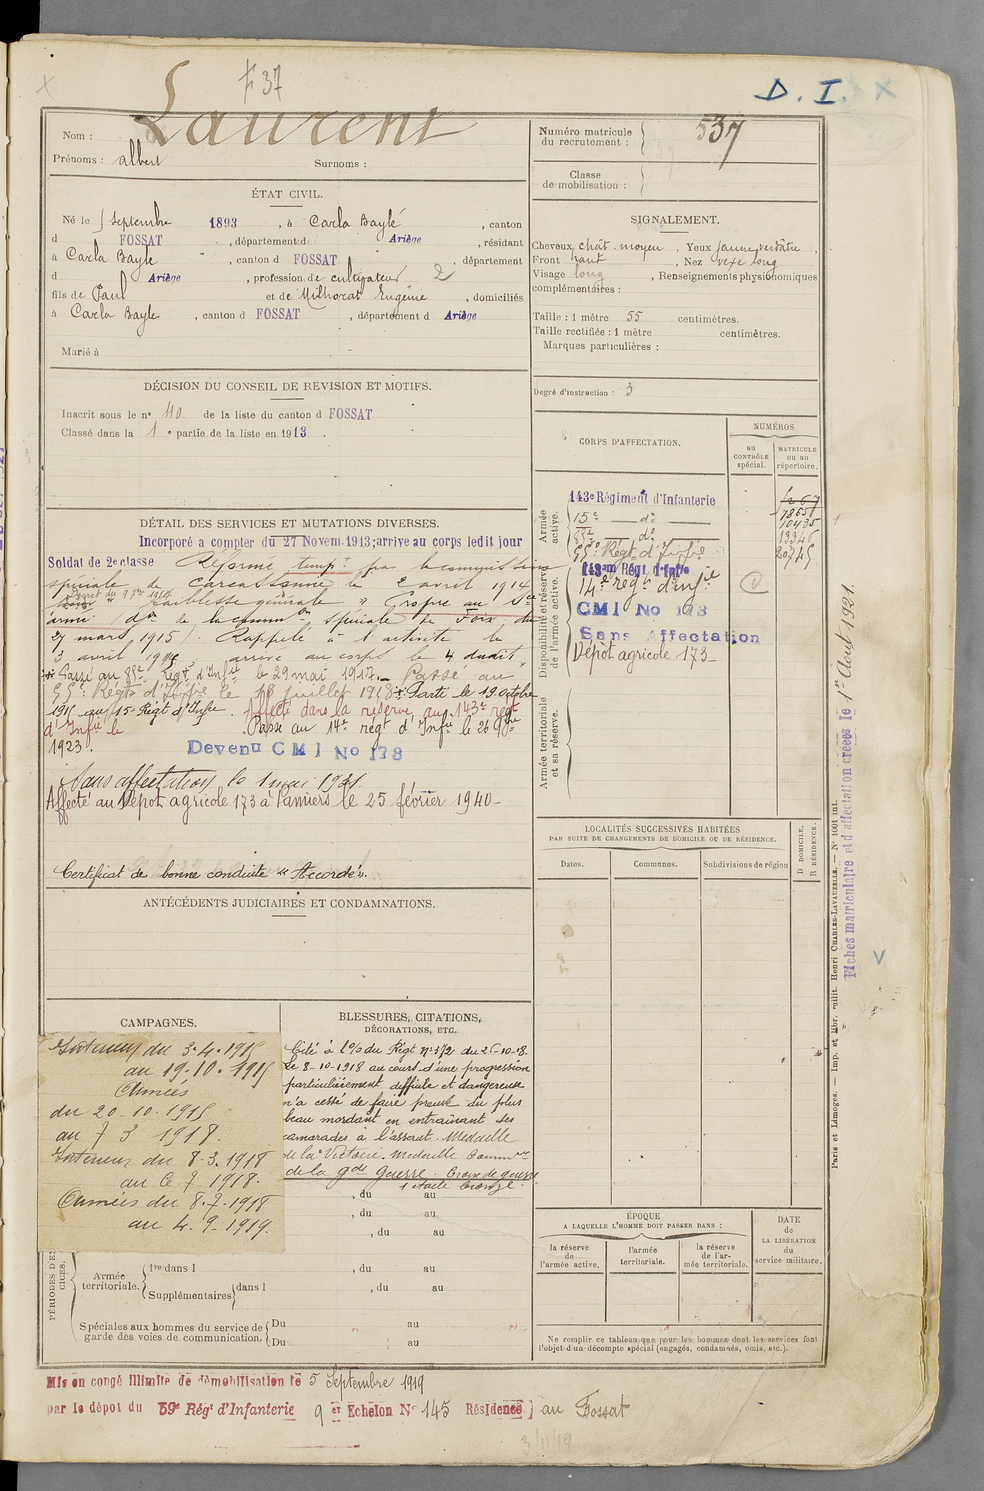 F 37
D. I. X
Nom : Laurent
Prénoms : albert Surnoms :
ÉTAT CIVIL.
Né le septembre 1893, à Carla Baylé, canton
d FOSSAT, département d Ariège, résidant
à Carla Bayle, canton d FOSSAT, département
d Ariège, profession de cultivateur 2
fils de Paul et de Milhorat Eugénie, domiciliés
à Carla Bayle, canton d FOSSAT, département d Ariège
Marié à
DÉCISION DU CONSEIL DE REVISION ET MOTIFS.
Inscrit sous le n° 40 de la liste du canton d FOSSAT
Classé dans la 1e partie de la liste en 1913.
DÉTAIL DES SERVICES ET MUTATIONS DIVERSES.
Incorporé a compter du 27 Novem. 1913; arrive au corps ledit jour
Soldat de 2e classe Réformé tempt par la commission
spéciale de Carcassonne le 2 avril 1914
Décret du 9 1914
faiblesse générale " Propre au Sce
armé don de la common spéciale de Foix du
27 mars 1915). Rappelé à l'activité le
3 avril arrivé au corps le 4 dudit,
Passé au Régt d'Infie le 29 mai 1917. Passé au
Régt d'Infrie le 18 juillet 1918. Parti le 19 octobre
1915 au 15e Régt d'Infie. Affecté dans la réserve au 143e régt
d'Infie le Passé au 14e régt d'Infie le 26 9bre
1923. Devenu C M I No 178
Sans affectation le 1 mai 1931
Affecté au Dépot agricole 173 à Pamiers le 25 février 1940-
Certificat de bonne conduite "Accordé".
ANTÉCÉDENTS JUDICIAIRES ET CONDAMNATIONS.
CAMPAGNES.
Intérieur du 3.4.1915
au 19.10.1915
Armées
du 20-10-1915
au 7 3 1918.
Intérieur du 8.3.1918
au 6.7.1918.
Armées du 8.7.1918
au 4.9.1919.
BLESSURES, CITATIONS,
DÉCORATIONS, ETC.
Cité à l'O/ du Régt n° 372 du -10-18.
Le 8-10-1918 au cours d'une progression
particulièrement difficile et dangereuse
n'a cessé de faire preuve du plus
beau mordant en entraînant ses
camarades à l'assaut. Médaille
de la Victoire. Médaille Commve
de la gde Guerre. Croix de guerre
1 étoile bronze.
, du au
, du au
, du au
PÉRIODES D'EX
CICES.
Armée
territoriale.
1re dans l , du au
Supplémentaires dans l , du au
Spéciales aux hommes du service de
garde des voies de communication.
Du au
Du au
Mis en congé illimité de démobilisation le 5 Septembre 1919
par le dépot du 59e Régt d'Infanterie 9 er Echelon No 145 Résidence au Fossat
Numéro matricule
du recrutement : 537
Classe
de mobilisation :
SIGNALEMENT.
Cheveux chât. moyen, Yeux jaune verdâtre,
Front haut, Nez vexe long
Visage long, Renseignements physionomiques
complémentaires :
Taille : 1 mètre 55 centimètres.
Taille rectifiée : 1 mètre centimètres.
Marques particulières :
Degré d'instruction : 3
CORPS D'AFFECTATION.
NUMÉROS
au
CONTRÔLE
spécial.
MATRICULE
ou au
répertoire.
Armée
active.
143e Régiment d'Infanterie
15e do
do
Régt d'Infie
10435
Disponibilité et réserve
de l'armée active.
143em Régt d'Infie
14e régt d'infie
C M I No 178
Sans Affectation
Dépôt agricole 173-
Armée territoriale
et sa réserve.
LOCALITÉS SUCCESSIVES HABITÉES
PAR SUITE DE CHANGEMENTS DE DOMICILE OU DE RÉSIDENCE.
D DOMICILE.
R RÉSIDENCE.
Dates. Communes. Subdivisions de région
ÉPOQUE
A LAQUELLE L'HOMME DOIT PASSER DANS :
la réserve
de
l'armée active.
l'armée
territoriale.
la réserve
de l'ar-
mée territoriale.
DATE
de
LA LIBÉRATION
du
service militaire.
Ne remplir ce tableau que pour les hommes dont les services font
l'objet d'un décompte spécial (engagés, condamnés, omis, etc.).
Paris et Limoges. — Imp. et libr. milit. Henri CHARLES-LAVAUZELLE. — N° 1001 int.
Fiches matriculaire et d'affectation créées le 1er Aout 1921.